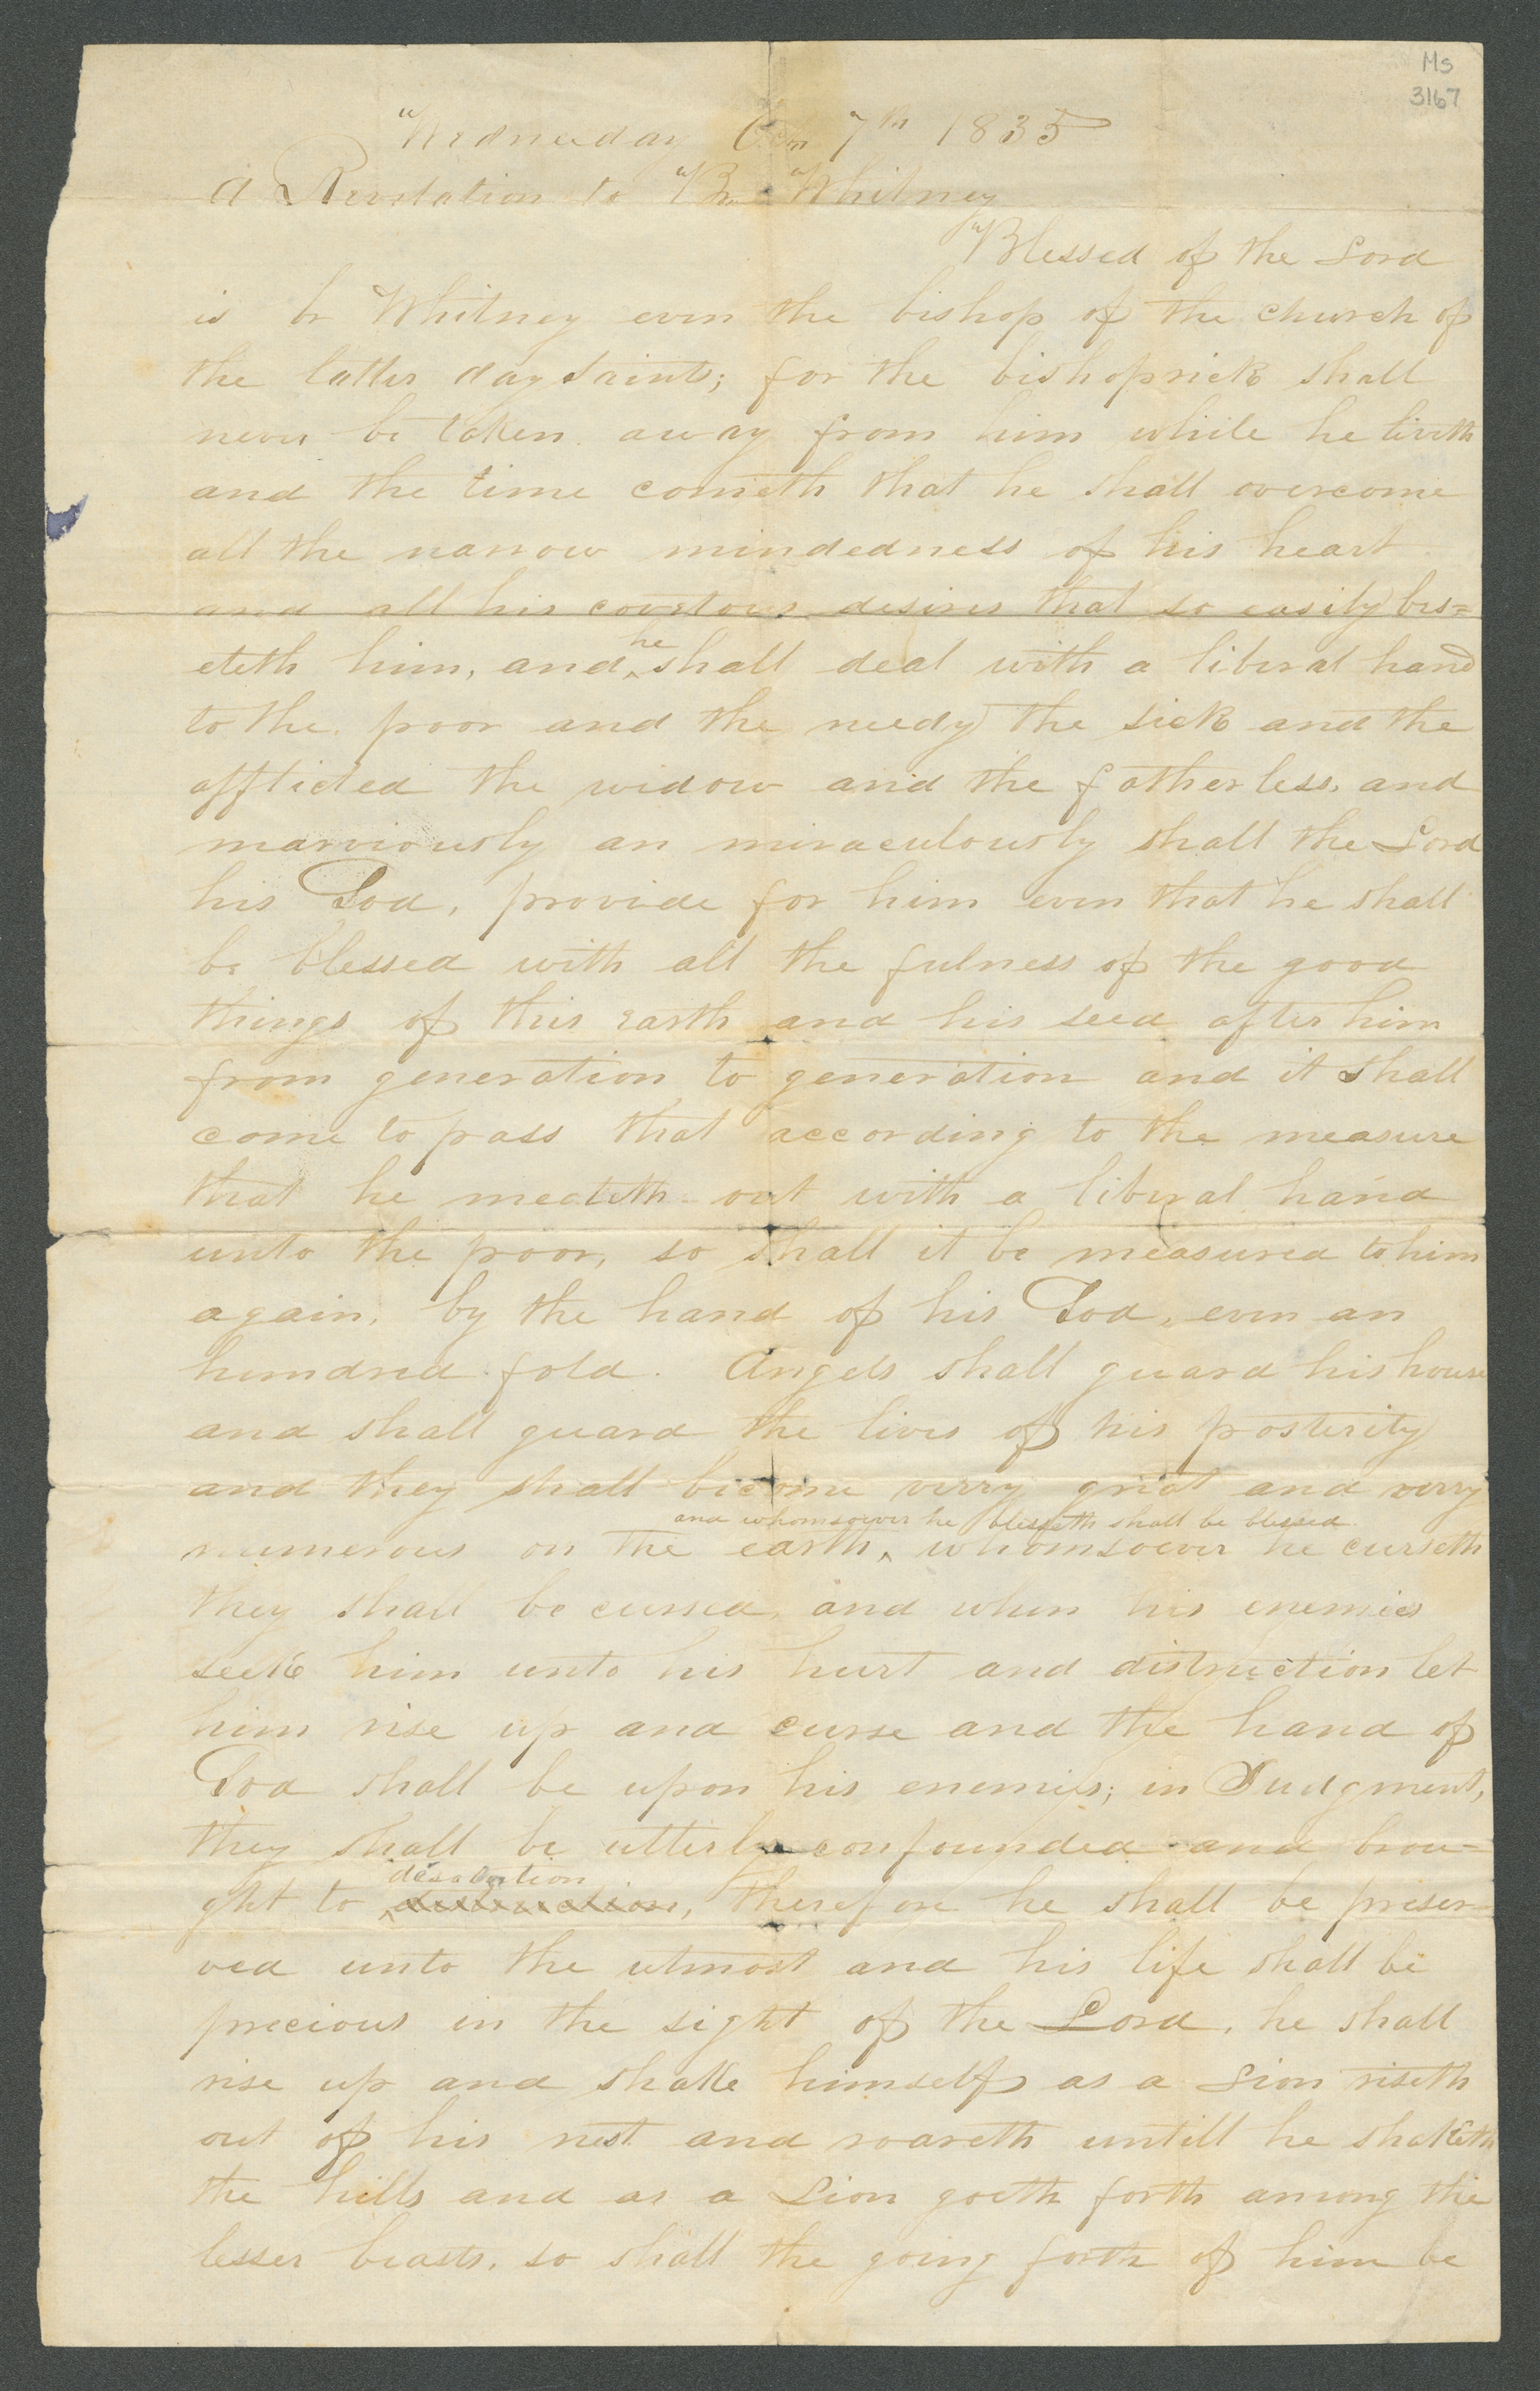 Ms
3167
Wednesday 7th 1835
A Revelation to Br Whitney
Blessed of the Lord
is br Whitney even the bishop of the church of
the latter day Saints; for the bishoprick shall
never be taken away from him while he liveth
and the time cometh that he shall overcome
all the narrow mindedness of his heart
and all his covetous desires that so easily bes=
eteth him, and he shall deal with a liberal hand
to the poor and the needy the sick and the
afflicted the widow and the fatherless, and
marviously an miraculously shall the Lord
his God, provide for him even that he shall
be blessed with all the fulness of the good
things of this earth and his seed after him
from generation to generation and it shall
come to pass that according to the measure
that he meateth out with a liberal hand
unto the poor, so shall it be measured to him
again, by the hand of his God, even an
hundred fold. Angels shall guard his house
and shall guard the lives of his posterity
and they shall become verry great and verry
and whomsoever he blesseth shall be blessed
numerous on the earth, whomsoever he curseth
they shall be cursed, and when his enemies
seek him unto his hurt and distruction let
him rise up and curse and the hand of
God shall be upon his enemies; in Judgment,
they shall be utterly confounded and brou=
desolation
ght to distruction, therefore he shall be preser=
ved unto the utmost and his life shall be
precious in the sight of the Lord, he shall
rise up and shake himself as a Lion riseth
out of his nest and roareth untill he shaketh
the hills and as a Lion goeth forth among the
lesser beasts, so shall the going forth of him be